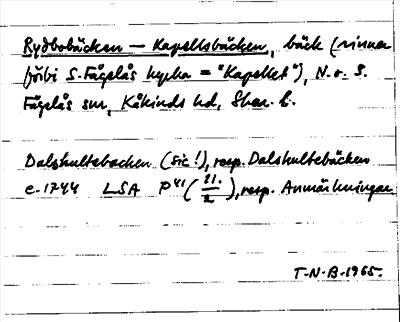 Rydbobäcken — Kapellsbäcken, bäck (rinner
förbi S. Fågelås kyrka = "Kapellet"), N. o. S.
Fågelås snr, Kåkinds hd, Skar. l.
Dalshultebacken (sic!), resp. Dalshultebäcken
c. 1744 LSA P 41 (11./2), resp. Anmärkningar
T. N. B. 1965.